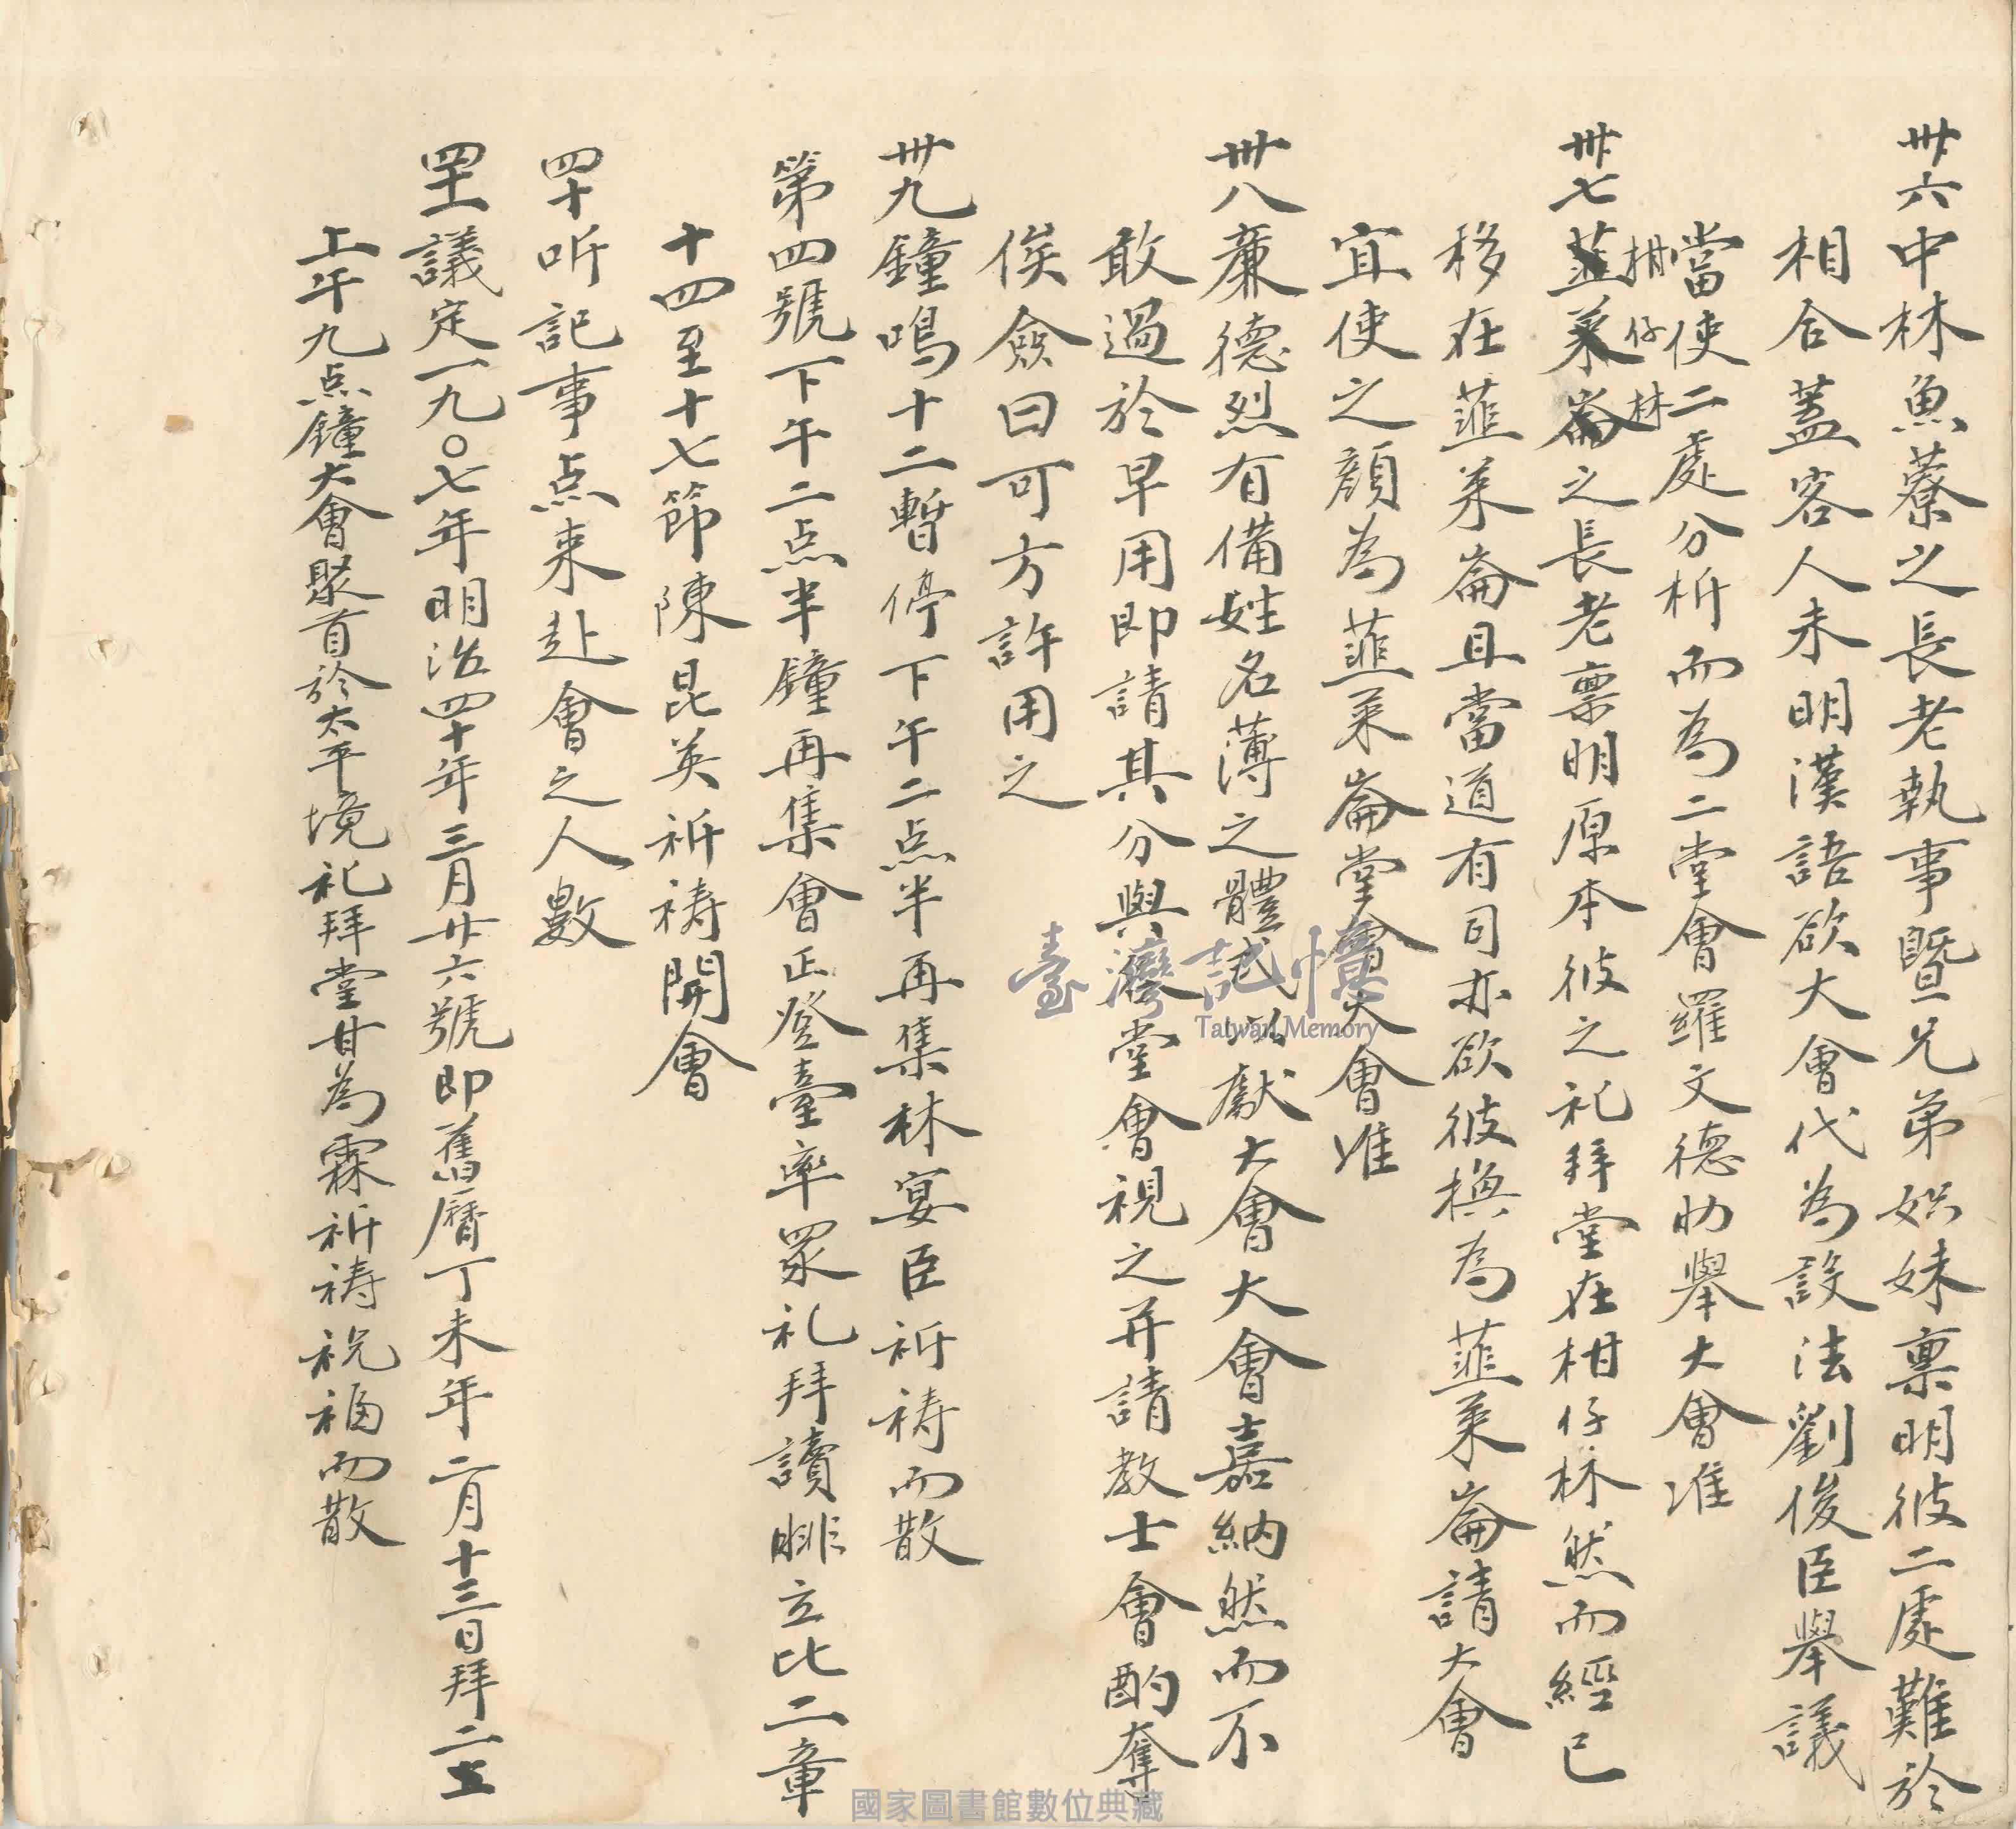 卅六中林魚藔之長老執事暨兄弟姊妹禀明彼二處難於
相合蓋客人未明漢語欲大會代為設法劉俊臣舉議
當使二處分析而為二堂會羅文德助舉大會准
卅七韮菜崙之長老禀明原本彼之礼拜堂在柑仔林然而經已
柑仔林
移在韮菜崙且當道有司亦欲彼換為韮菜崙請大會
宜使之顏為韮菜崙堂會大會准
卅八廉德烈有備姓名薄之體式以獻大會大會嘉納然而不
敢過於早用即請其分與 堂會視之并請教士會酌奪
俟僉曰可方許用之
卅九鐘鳴十二暫停下午二点半再集林宴臣祈禱而散
第四號下午二点半鐘再集會正登臺率眾礼拜讀腓立比二章
十四至十七節陳昆英祈禱開會
四十听記事点来赴會之人數
四十一議定一九〇七年明治四十年三月廿六號即舊曆丁未年二月十三日拜二
上午九点鐘大會聚首於太平境礼拜堂甘為霖祈禱祝福而散
臺灣記憶
Taiwan Memory
國家圖書館數位典藏